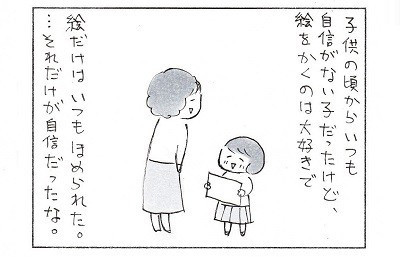 子供の頃からいつも
自信がない子だったけど、
絵をかくのは大好きで
絵だけはいつもほめられた。
…それだけが自信だったな。